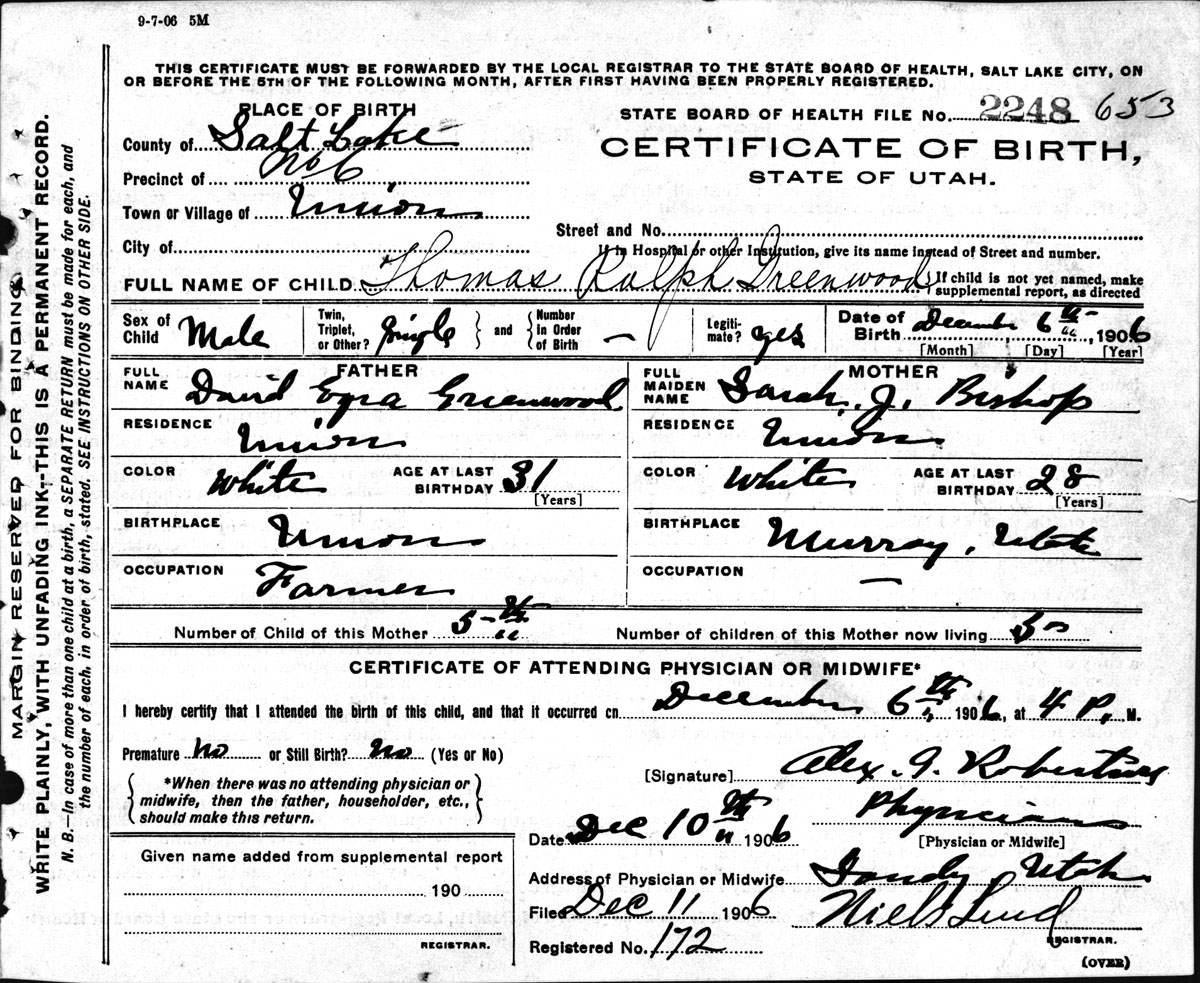 9-7-06 5M
THIS CERTIFICATE MUST BE FORWARDED BY THE LOCAL REGISTRAR TO THE STATE BOARD OF HEALTH, SALT LAKE CITY, ON
OR BEFORE THE 5TH OF THE FOLLOWING MONTH, AFTER FIRST HAVING BEEN PROPERLY REGISTERED.
MARGIN RESERVED FOR BINDING
WRITE PLAINLY, WITH UNFADING INK--THIS IS A PERMANENT RECORD.
N. B.—In case of more than one child at a birth, a SEPARATE RETURN must be made for each, and
the number of each, in order of birth, stated. SEE INSTRUCTIONS ON OTHER SIDE.
PLACE OF BIRTH
County of Salt Lake
Precinct of No 6
Town or Village of Union
City of
STATE BOARD OF HEALTH FILE No. 2248 653
CERTIFICATE OF BIRTH,
STATE OF UTAH.
Street and No.
If in Hospital or other Institution, give its name instead of Street and number.
FULL NAME OF CHILD Thomas Ralph Greenwood { If child is not yet named, make
supplemental report, as directed
Sex of Child Male
Twin, Triplet, or Other? Single } and { Number In Order of Birth —
Legiti- mate? yes
Date of Birth December 6th, 1906
[Month] [Day] [Year]
FATHER
FULL NAME David Ezra Greenwood
RESIDENCE Union
COLOR White AGE AT LAST BIRTHDAY 31
[Years]
BIRTHPLACE Union
OCCUPATION Farmer
MOTHER
FULL MAIDEN NAME Sarah J. Bishop
RESIDENCE Union
COLOR White AGE AT LAST BIRTHDAY 28
[Years]
BIRTHPLACE Murray, Utah
OCCUPATION —
Number of Child of this Mother 5th Number of children of this Mother now living 5
CERTIFICATE OF ATTENDING PHYSICIAN OR MIDWIFE*
I hereby certify that I attended the birth of this child, and that it occurred on December 6th 1906, at 4 P. M.
Premature No or Still Birth? No (Yes or No)
*When there was no attending physician or
midwife, then the father, householder, etc.,
should make this return.
[Signature] Alex. J. Robertson
Physician
[Physician or Midwife]
Date Dec 10th 1906
Address of Physician or Midwife Sandy, Utah
Given name added from supplemental report
190
REGISTRAR.
Filed Dec 11 1906 Niels Lind
REGISTRAR.
Registered No. 172
(OVER)